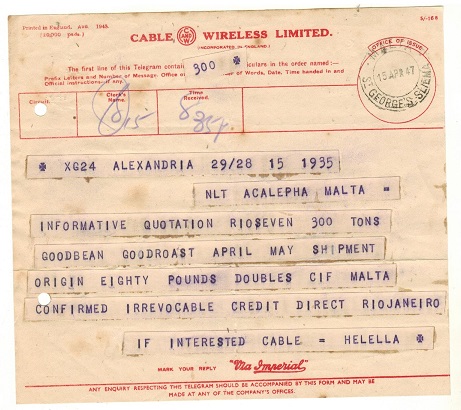 Printed in England, Aug. 1945.
CABLE, AND WIRELESS LIMITED.
(INCORPORATED IN ENGLAND.)
The first line of this Telegram contain 300 * iculars in the order named:—
Prefix Letters and Number of Message, Office of r of Words, Date, Time handed in and
Official instructions—if any.
OFFICE OF ISSUE
15 APR 47
ST GEORGE'S
Circuit.
Clerk's Name.
Time Received.
* XG24 ALEXANDRIA 29/28 15 1935
NLT ACALEPHA MALTA =
INFORMATIVE QUOTATION RIOSEVEN 300 TONS
GOODBEAN GOODROAST APRIL MAY SHIPMENT
ORIGIN EIGHTY POUNDS DOUBLES CIF MALTA
CONFIRMED IRREVOCABLE CREDIT DIRECT RIOJANEIRO
IF INTERESTED CABLE = HELELLA *
MARK YOUR REPLY "Via Imperial"
ANY ENQUIRY RESPECTING THIS TELEGRAM SHOULD BE ACCOMPANIED BY THIS FORM AND MAY BE
MADE AT ANY OF THE COMPANY'S OFFICES.